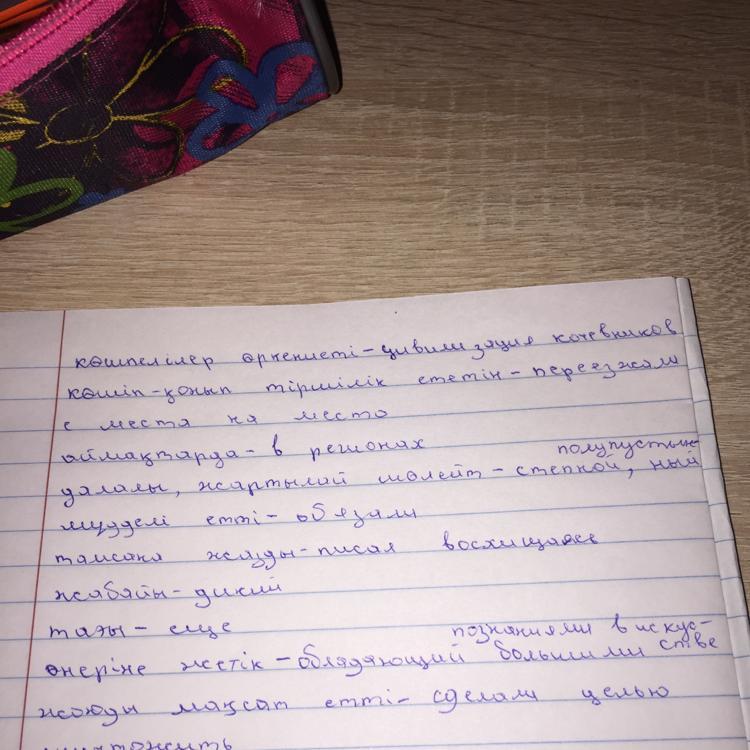 көшпелілер өркениеті - цивилизация кочевников
көшіп-қонып тіршілік ететін - переезжали
с места на место
аймақтарда - в регионах
далалы, жартылай шөлейт - степной, полупустын-
ный
мүдделі етті - обязали
тамсана жазды - писал восхищаясь
жабайы - дикий
тағы - еще
өнеріне жетік - обладающий большими познаниями в искус-
стве
жоюды мақсат етті - сделали целью
уничтожить